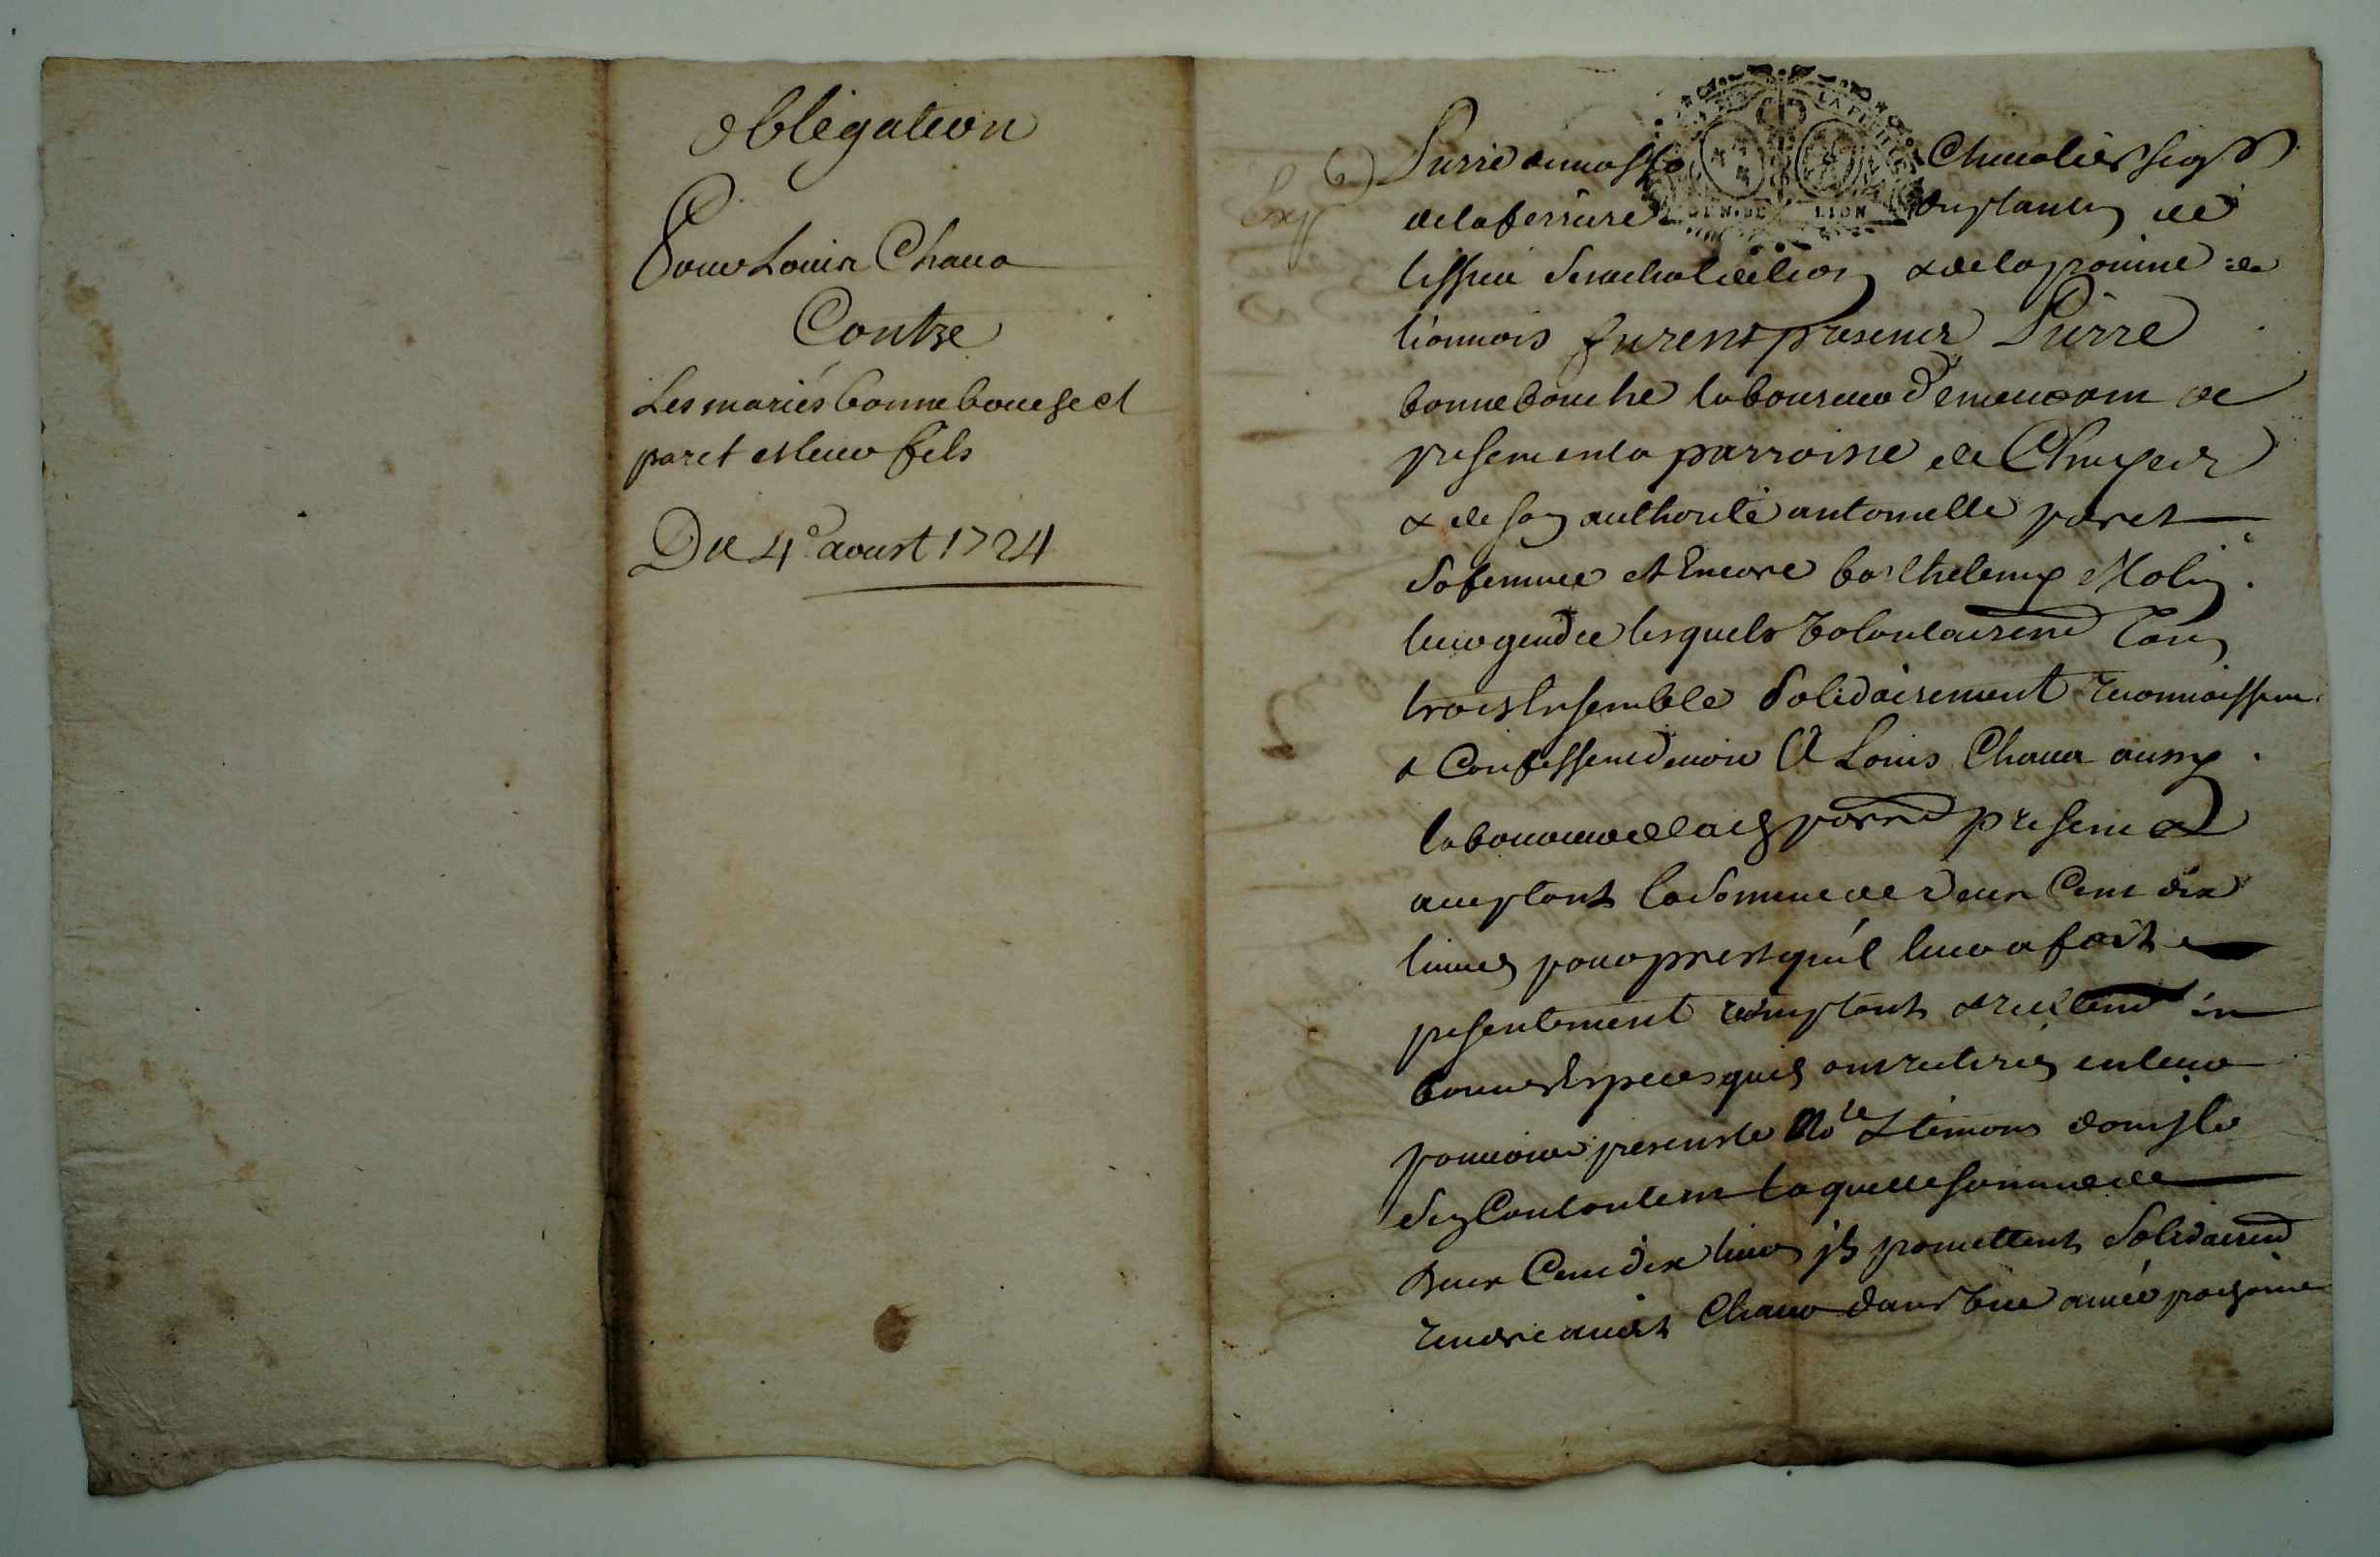 obligation
Pour Louis Chaua
Contre
Les mariés bonnebouche et
paret et leur fils
Du 4e aoust 1724
Pierre Chevalier seigr
de la ferriere de
lissieu senechal de lion & de la
lionnois furent presents Pierre
bonnebouche laboureur de
present en la parroisse de
& de son authorité antoinette paret
sa femme et Encore barthelemy Molin
leur gendre lesquels volontairemt tous
trois Ensemble solidairement reconnoissent
& Confessent devoir A Louis Chaua aussy
laboureur de lad parrd present &
acceptant la somme de deux Cent dix
livres pour prest qu'il leur a fait
presentement comptant & reelemt en
bonnes Especes quils ont retirés en leur
pouvoir presents le nore & temoins dont ils
se contentent laquelle somme de
deux Cent dix livres ils promettent solidairemt
rendre audt Chaua dans une année prochaine
GEN. DE LION